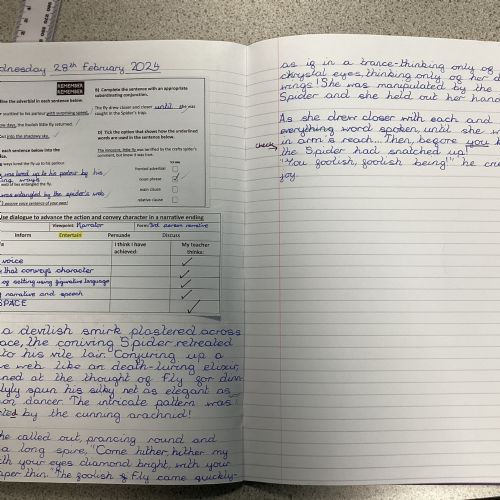 dnesday 28th February 2024
REMEMBER
REMEMBER
the adverbial in each sentence below.
scuttled to his parlour with surprising speed.
days, the foolish little fly returned.
out into the shadowy sky.
each sentence into the
ways lured the fly up to his parlour.
was lured up to his parlour by his
ways
web of lies entangled the fly.
was entangled by the spider's web
b) Complete the sentence with an appropriate
subordinating conjunction.
The fly drew closer and closer until she was
caught in the Spider's trap.
d) Tick the option that shows how the underlined
words are used in the sentence below.
The innocent, little fly was terrified by the crafty spider's
comment, but knew it was true.
fronted adverbial
noun phrase
main clause
relative clause
Use dialogue to advance the action and convey character in a narrative ending
Viewpoint: Narrator
Form: 3rd person narrative
Inform
Entertain
Persuade
Discuss
I think I have
achieved:
My teacher
thinks:
voice
that conveys character
of setting using figurative language
narrative and speech
SPACE
a devilish smirk plastered across
ace, the coniving Spider retreated
to his vile lair. Conjuring up a
web like an death-luring elixir,
ned at the thought of Fly for din
lyly spun his silky net as elegant as
dancer. The intricate pattern was
by the cunning arachnid!
he called out, prancing round and
a long spire, "Come hither, hither my
th your eyes diamond bright, with your
aper thin." The foolish Fly came quickly-
as if in a trance-thinking only of
chrystal eyes, thinking only of her d
wings! She was manipulated by the
Spider and she held out her hand
As she drew closer with each and
everything word spoken, until she w
in arm's reach... Then, before you k
check
the Spider had snatched up!
"You foolish, foolish being!" he cried
joy.